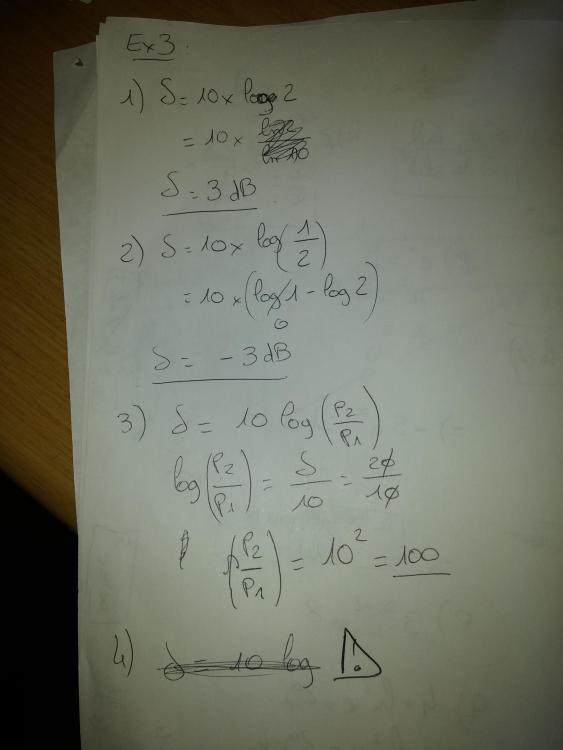 Ex3:
1) δ = 10 × log 2
= 10 ×
δ = 3 dB
2) δ = 10 × log(1/2)
= 10 × (log 1 - log 2)
0
δ = - 3 dB
3) δ = 10 log (P2/P1)
log (P2/P1) = δ/10 = 20/10
(P2/P1) = 10² = 100
4) δ = 10 log